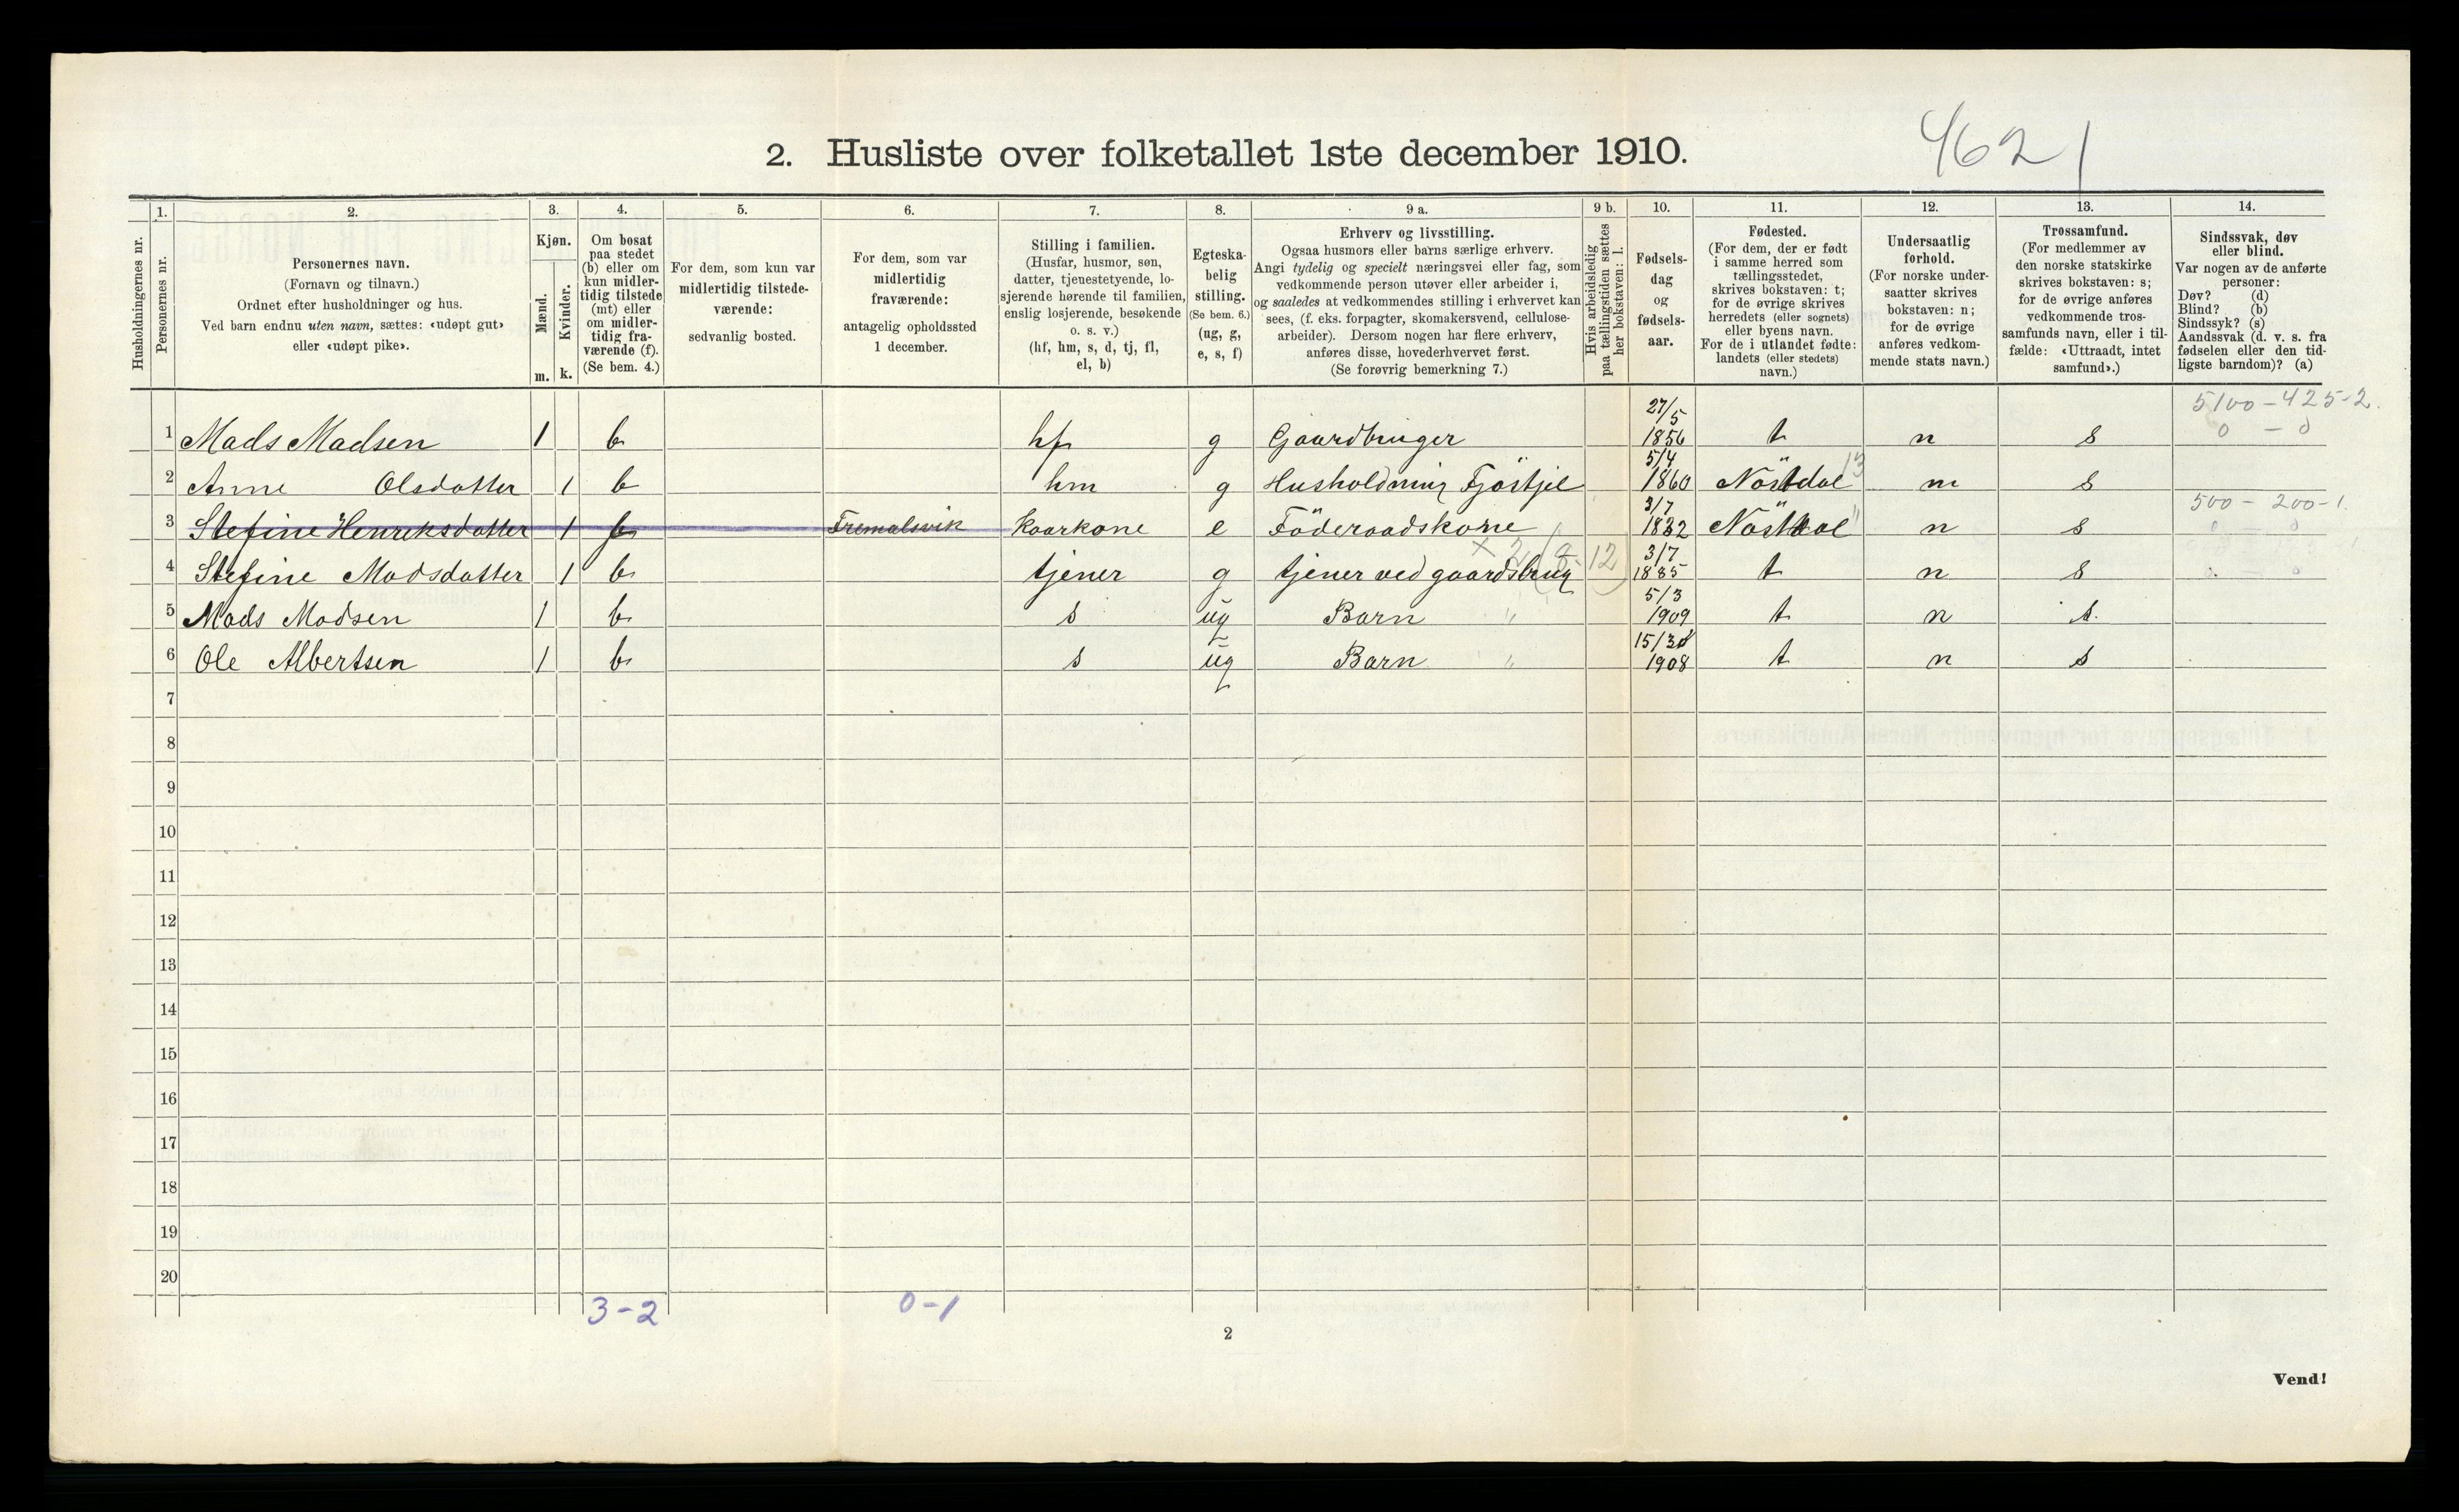 2. Husliste over folketallet 1ste december 1910.
4621
Husholdningernes nr.
1.
Personernes nr.
2.
Personernes navn.
(Fornavn og tilnavn.)
Ordnet efter husholdninger og hus.
Ved barn endnu uten navn, sættes: «udøpt gut»
eller «udøpt pike».
3.
Kjøn.
Mænd.
m.
Kvinder.
k.
4.
Om bosat
paa stedet
(b) eller om
kun midler-
tidig tilstede
(mt) eller
om midler-
tidig fra-
værende (f).
(Se bem. 4.)
5.
For dem, som kun var
midlertidig tilstede-
værende:
sedvanlig bosted.
6.
For dem, som var
midlertidig
fraværende:
antagelig opholdssted
1 december.
7.
Stilling i familien.
(Husfar, husmor, søn,
datter, tjenestetyende, lo-
sjerende hørende til familien,
enslig losjerende, besøkende
o. s. v.)
(hf, hm, s, d, tj, fl,
el, b)
8.
Egteska-
belig
stilling.
(Se bem. 6.)
(ug, g,
e, s, f)
9 a.
Erhverv og livsstilling.
Ogsaa husmors eller barns særlige erhverv.
Angi tydelig og specielt næringsvei eller fag, som
vedkommende person utøver eller arbeider i,
og saaledes at vedkommendes stilling i erhvervet kan
sees, (f. eks. forpagter, skomakersvend, cellulose-
arbeider). Dersom nogen har flere erhverv,
anføres disse, hovederhvervet først.
(Se forøvrig bemerkning 7.)
9 b.
Hvis arbeidsledig
paa tællingstiden sættes
her bokstaven: l.
10.
Fødsels-
dag
og
fødsels-
aar.
11.
Fødested.
(For dem, der er født
i samme herred som
tællingsstedet,
skrives bokstaven: t;
for de øvrige skrives
herredets (eller sognets)
eller byens navn.
For de i utlandet fødte:
landets (eller stedets)
navn.)
12.
Undersaatlig
forhold.
(For norske under-
saatter skrives
bokstaven: n;
for de øvrige
anføres vedkom-
mende stats navn.)
13.
Trossamfund.
(For medlemmer av
den norske statskirke
skrives bokstaven: s;
for de øvrige anføres
vedkommende tros-
samfunds navn, eller i til-
fælde: «Uttraadt, intet
samfund».)
14.
Sindssvak, døv
eller blind.
Var nogen av de anførte
personer:
Døv? (d)
Blind? (b)
Sindssyk? (s)
Aandssvak (d. v. s. fra
fødselen eller den tid-
ligste barndom)? (a)
5100 - 425-2.
0 - 0
1 Mads Madsen 1 b hf g Gaardbruger 27/5 1856 t n s
2 Anne Olsdatter 1 b hm g Husholdning Fjöstjel 5/4 1860 Nöstdal 13 n s
500 - 200-1.
3 Stefine Henriksdatter 1 Tremalsvik Kaarkone e Föderaadskone 3/7 1832 Nöstdal " n s
4 Stefine Madsdatter 1 b tjener g tjener ved gaardsbrug 12 3/7 1885 t n s
5 Mads Madsen 1 b s ug Barn " 5/3 1909 t n s
6 Ole Albertsen 1 b s ug Barn " 1908 t n s
7
8
9
10
11
12
13
14
15
16
17
18
19
20
3-2 0-1
2
Vend!